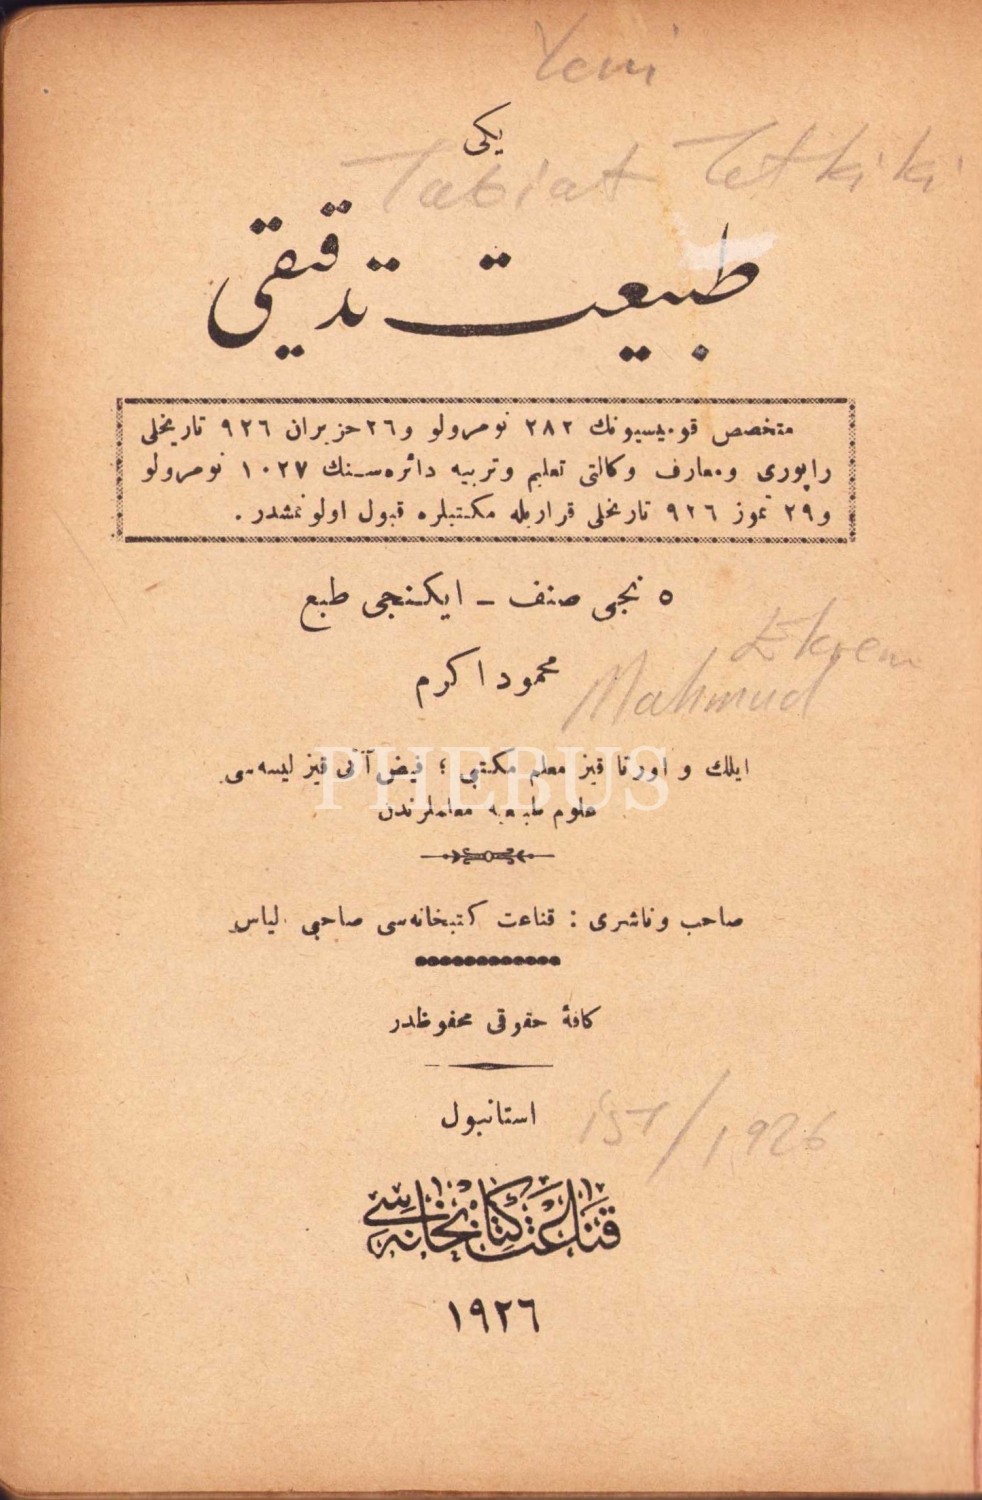 Yeni
یکی
Tabiat Tetkiki
طبیعت تدقیقی
متخصص قومیسیونك ٢٨٢ نومرولو و٢٦حزیران ٩٢٦ تاریخلی
راپوری ومعارف وکالتی تعلیم وتربیه دائره‌سنك ١٠٢٧ نومرولو
و٢٩ تموز ٩٢٦ تاریخلی قراریله مکتبلره قبول اولونمشدر.
٥ نجی صنف - ایکنجی طبع
Ekrem
محمود اکرم
Mahmud
ایلك و اورتا قیز معلم مکتبی ؛ فیض آتی قیز لیسه‌سی
PHEBUS
علوم طبیعیه معلملرندن
صاحب وناشری : قناعت کتبخانه‌سی صاحبی الیاس
کافهٔ حقوقی محفوظدر
استانبول
ist/1926
قناعت کتابخانه‌سی
١٩٢٦